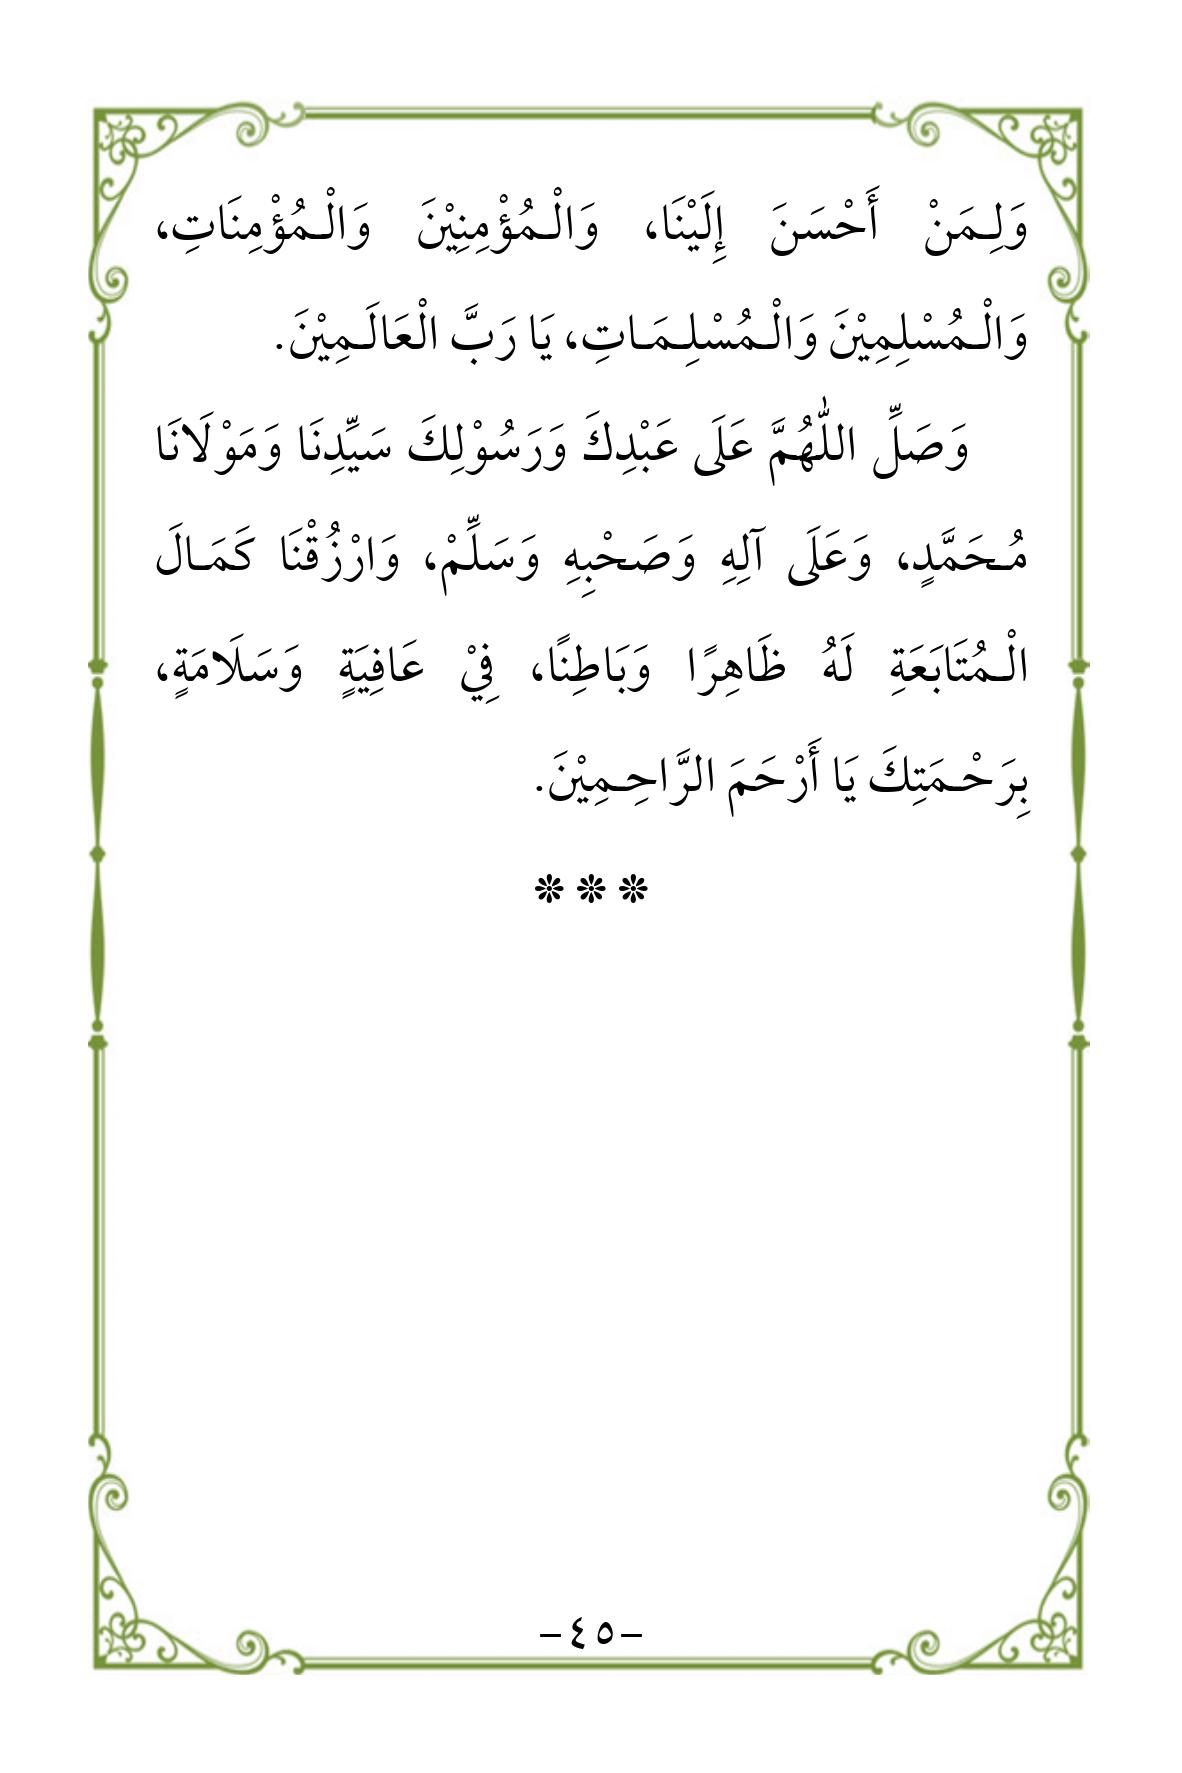 وَلِـمَنْ أَحْسَنَ إِلَيْنَا، وَالْـمُؤْمِنِيْنَ وَالْـمُؤْمِنَاتِ،
وَالْـمُسْلِمِيْنَ وَالْـمُسْلِـمَـاتِ، يَا رَبَّ الْعَالَـمِيْنَ.
وَصَلِّ اللّٰهُمَّ عَلَى عَبْدِكَ وَرَسُوْلِكَ سَيِّدِنَا وَمَوْلَانَا
مُـحَمَّدٍ، وَعَلَى آلِهِ وَصَحْبِهِ وَسَلِّمْ، وَارْزُقْنَا كَمَـالَ
الْـمُتَابَعَةِ لَهُ ظَاهِرًا وَبَاطِنًا، فِيْ عَافِيَةٍ وَسَلَامَةٍ،
بِرَحْـمَتِكَ يَا أَرْحَمَ الرَّاحِـمِيْنَ.
❊ ❊ ❊
–٤٥–